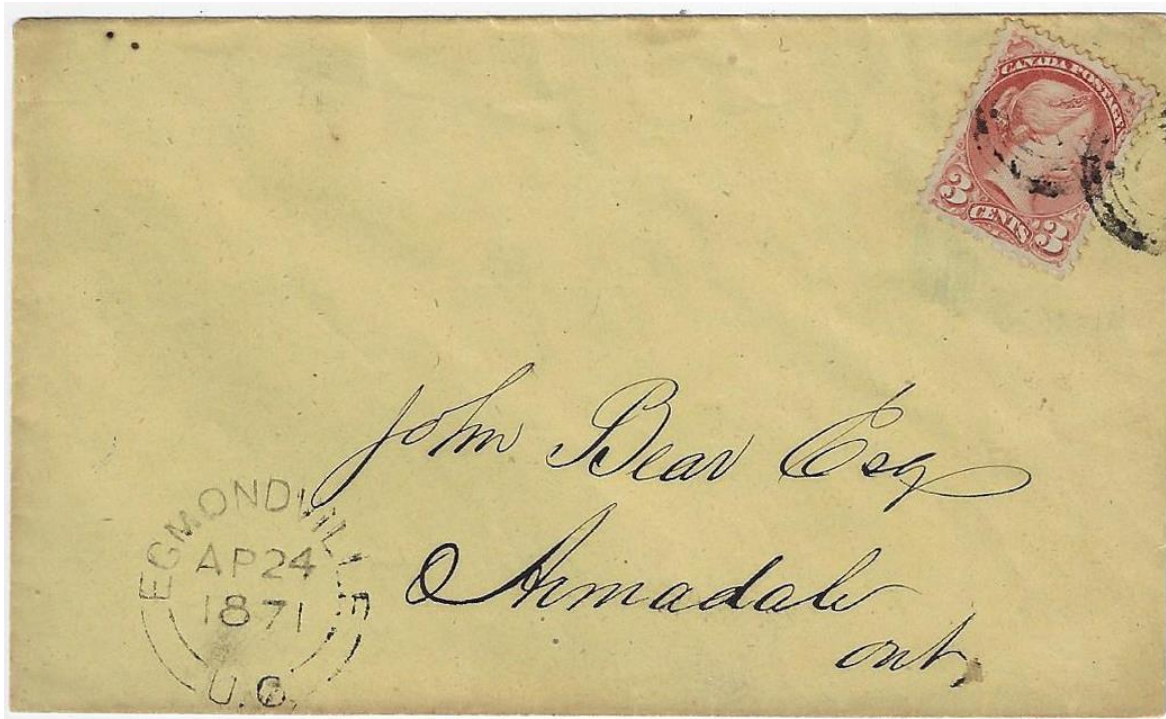 CANADA POSTAGE
3 CENTS 3
John Bear Esq
Armadale
ont,
EGMONDVILLE
AP 24
1871
U.C.